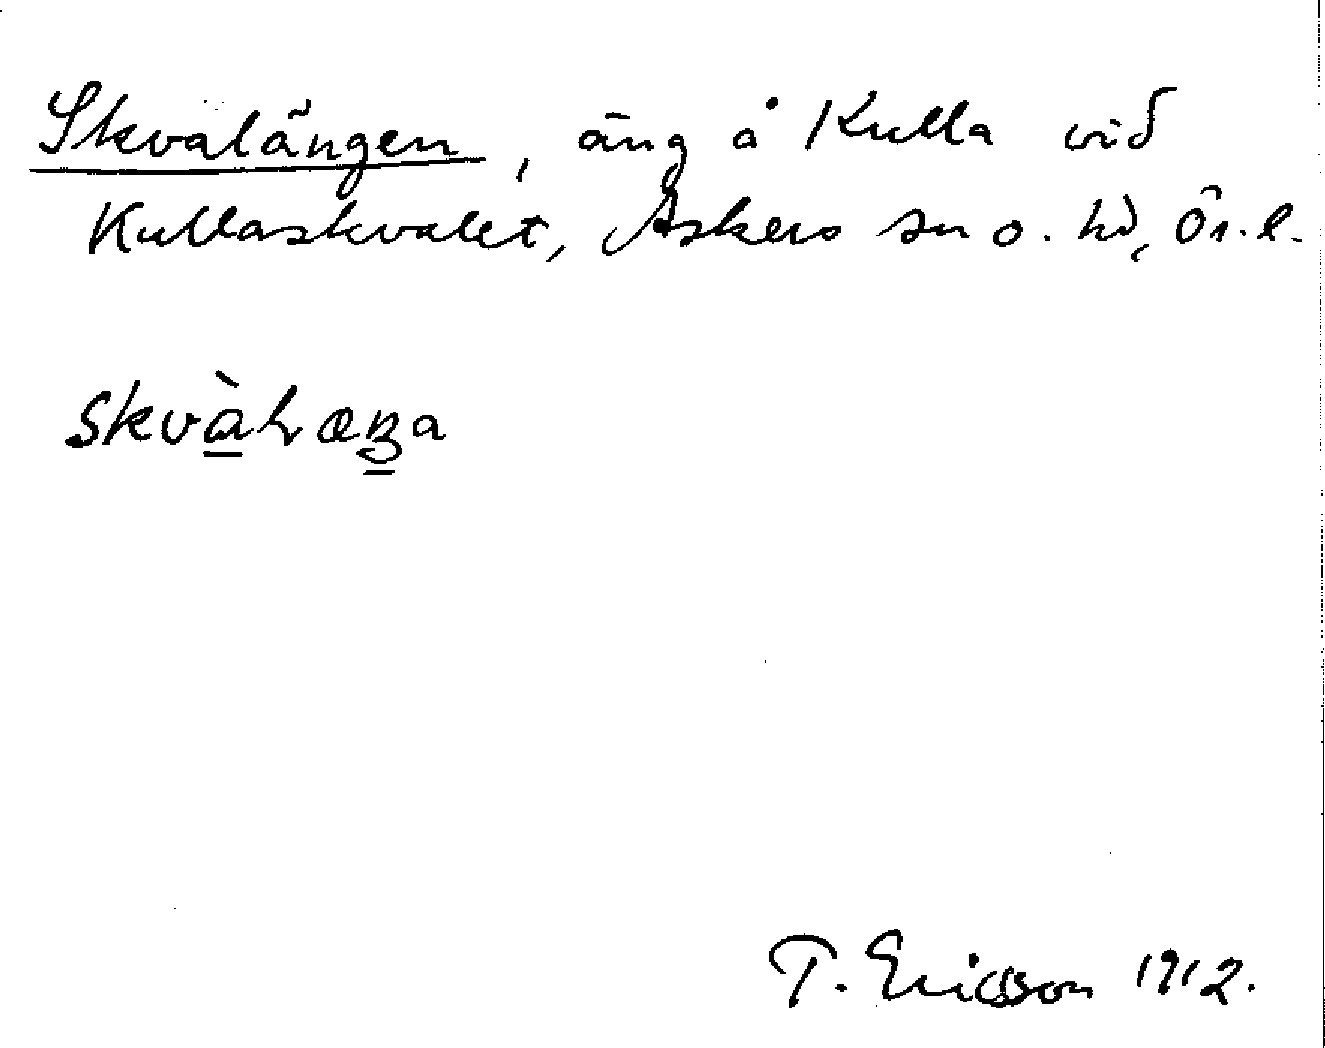 Skvalängen, äng å Kulla vid
Kullaskvalet, Askers sn o. hd, Ör. l.
T. Ericsson 1912.